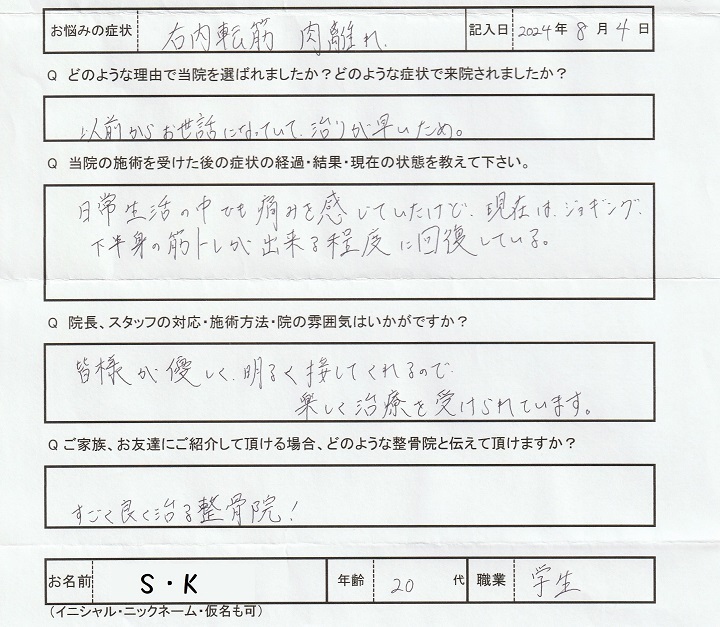 お悩みの症状 右内転筋 肉離れ 記入日 2024年 8月 4日
Q どのような理由で当院を選ばれましたか？どのような症状で来院されましたか？
以前からお世話になっていて、治りが早いため。
Q 当院の施術を受けた後の症状の経過・結果・現在の状態を教えて下さい。
日常生活の中でも痛みを感じていたけど、現在は、ジョギング、
下半身の筋トレが出来る程度に回復している。
Q 院長、スタッフの対応・施術方法・院の雰囲気はいかがですか？
皆様が優しく、明るく接してくれるので
楽しく治療を受けられています。
Q ご家族、お友達にご紹介して頂ける場合、どのような整骨院と伝えて頂けますか？
すごく良く治る整骨院！
お名前 S・K 年齢 20 代 職業 学生
（イニシャル・ニックネーム・仮名も可）